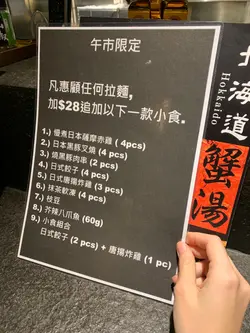 午市限定
凡惠顧任何拉麵,
加$28追加以下一款小食.
1.) 慢煮日本薩摩赤雞 ( 4pcs)
2.) 日本黑豚叉燒 ( 4 pcs)
3.) 燒黑豚肉串 ( 2 pcs)
4.) 日式餃子 ( 4 pcs)
5.) 日式唐揚炸雞 ( 3 pcs)
6.) 抹茶軟凍 ( 4 pcs)
7.) 枝豆
8.) 芥辣八爪魚 (60g)
9.) 小食組合
日式餃子 ( 2 pcs) + 唐揚炸雞 (1 pc)
北海道
Hokkaido
蟹湯